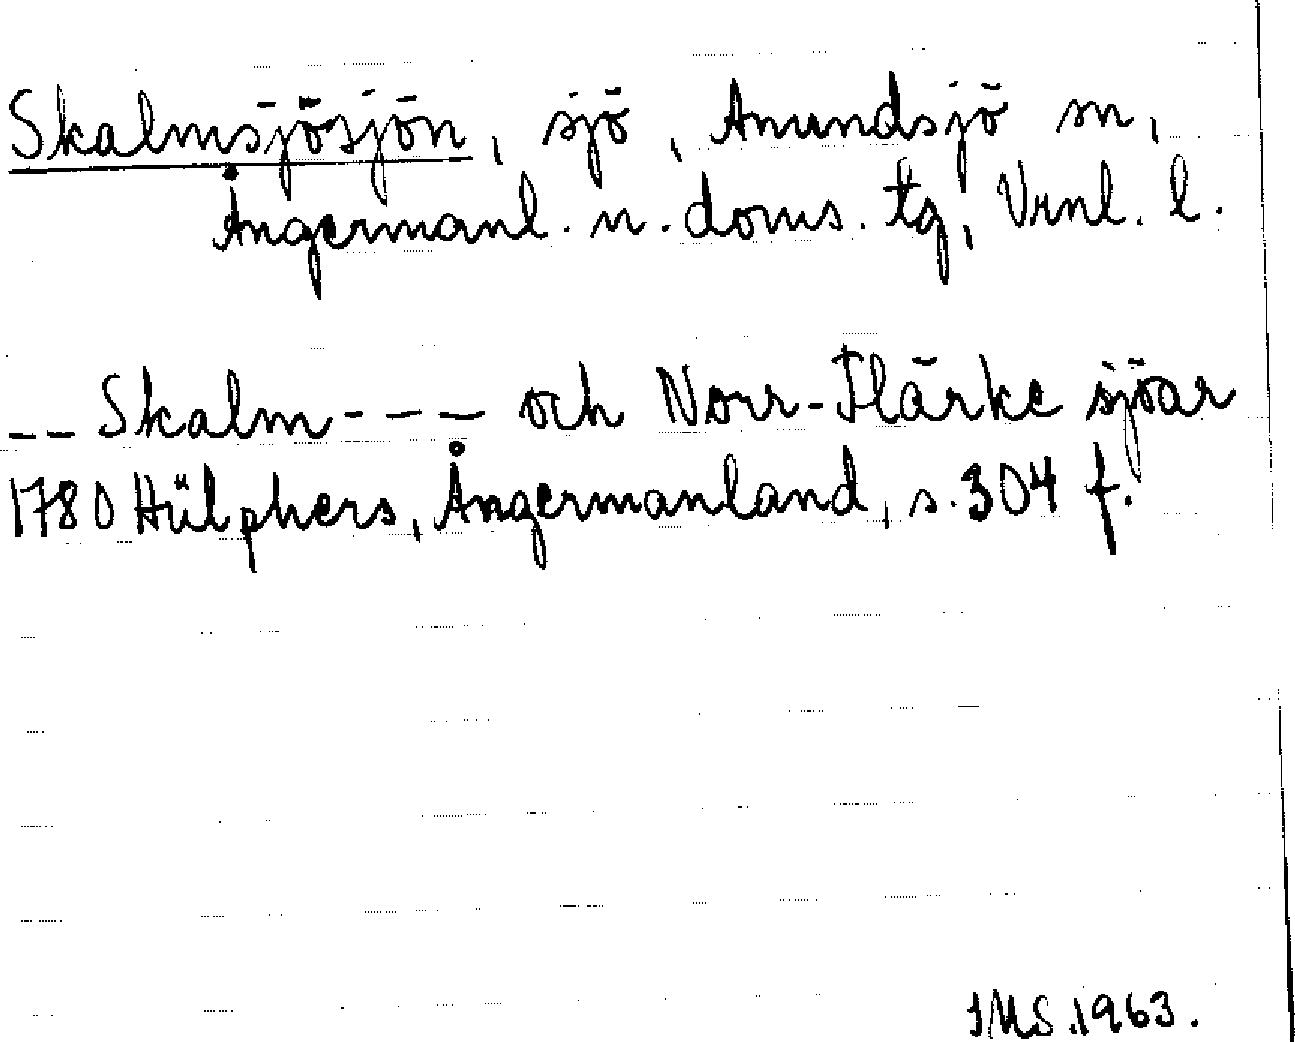 Skalmsjösjön, sjö, Anundsjö sn,
Ångermanl. n. doms. tg, Vrnl. l.
-- Skalm - - - och Norr-Flärke sjöar
1780 Hülphers, Ångermanland, s. 304 f.
IMS. 1963.